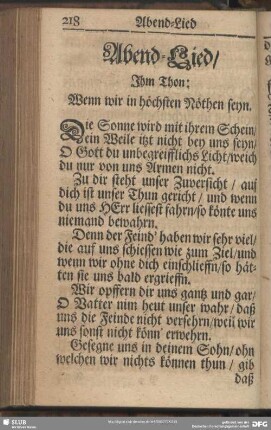 218 Abend-Lied
Abend-Lied/
Ihm Thon:
Wenn wir in höchsten Nöthen seyn.
Die Sonne wird mit ihrem Schein/
ein Weile itzt nicht bey uns seyn/
O Gott du unbegreifflichs Licht/weich
du nur von uns Armen nicht.
Zu dir steht unser Zuversicht / auf
dich ist unser Thun gericht / und wenn
du uns HErr liessest fahrn/so könte uns
niemand bewahrn.
Denn der Feind' haben wir sehr viel/
die auf uns schiessen wie zum Ziel/und
wenn wir ohne dich einschlieffn/so hät-
ten sie uns bald ergrieffn.
Wir opffern dir uns gantz und gar/
O Vatter nim heut unser wahr/ daß
uns die Feindt nicht versehrn/weil wir
uns sonst nicht könn' erwehrn.
Gesegne uns in deinem Sohn/ohn
welchen wir nichts können thun / gib
daß
SLUB
DFG